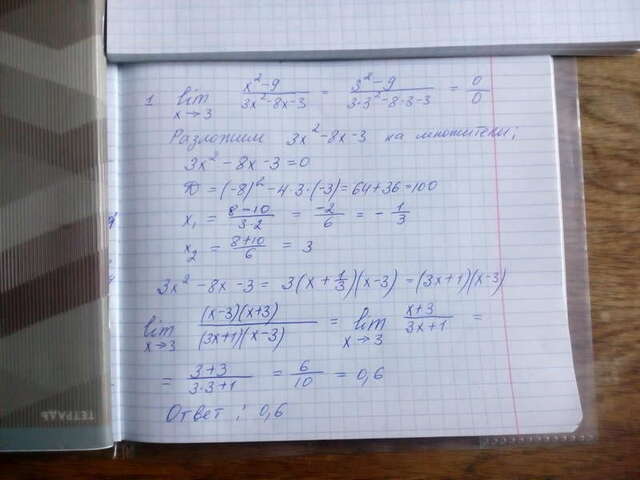 1. lim x→3 (x²-9)/(3x²-8x-3) = (3²-9)/(3·3²-8·3-3) = 0/0
Разложим 3x²-8x-3 на множители;
3x²-8x-3=0
D=(-8)²-4·3·(-3)=64+36=100
x₁ = (8-10)/(3·2) = -2/6 = -1/3
x₂ = (8+10)/6 = 3
3x²-8x-3 = 3(x+1/3)(x-3) = (3x+1)(x-3)
lim x→3 ((x-3)(x+3))/((3x+1)(x-3)) = lim x→3 (x+3)/(3x+1) =
= (3+3)/(3·3+1) = 6/10 = 0,6
Ответ: 0,6
ТЕТРАДЬ